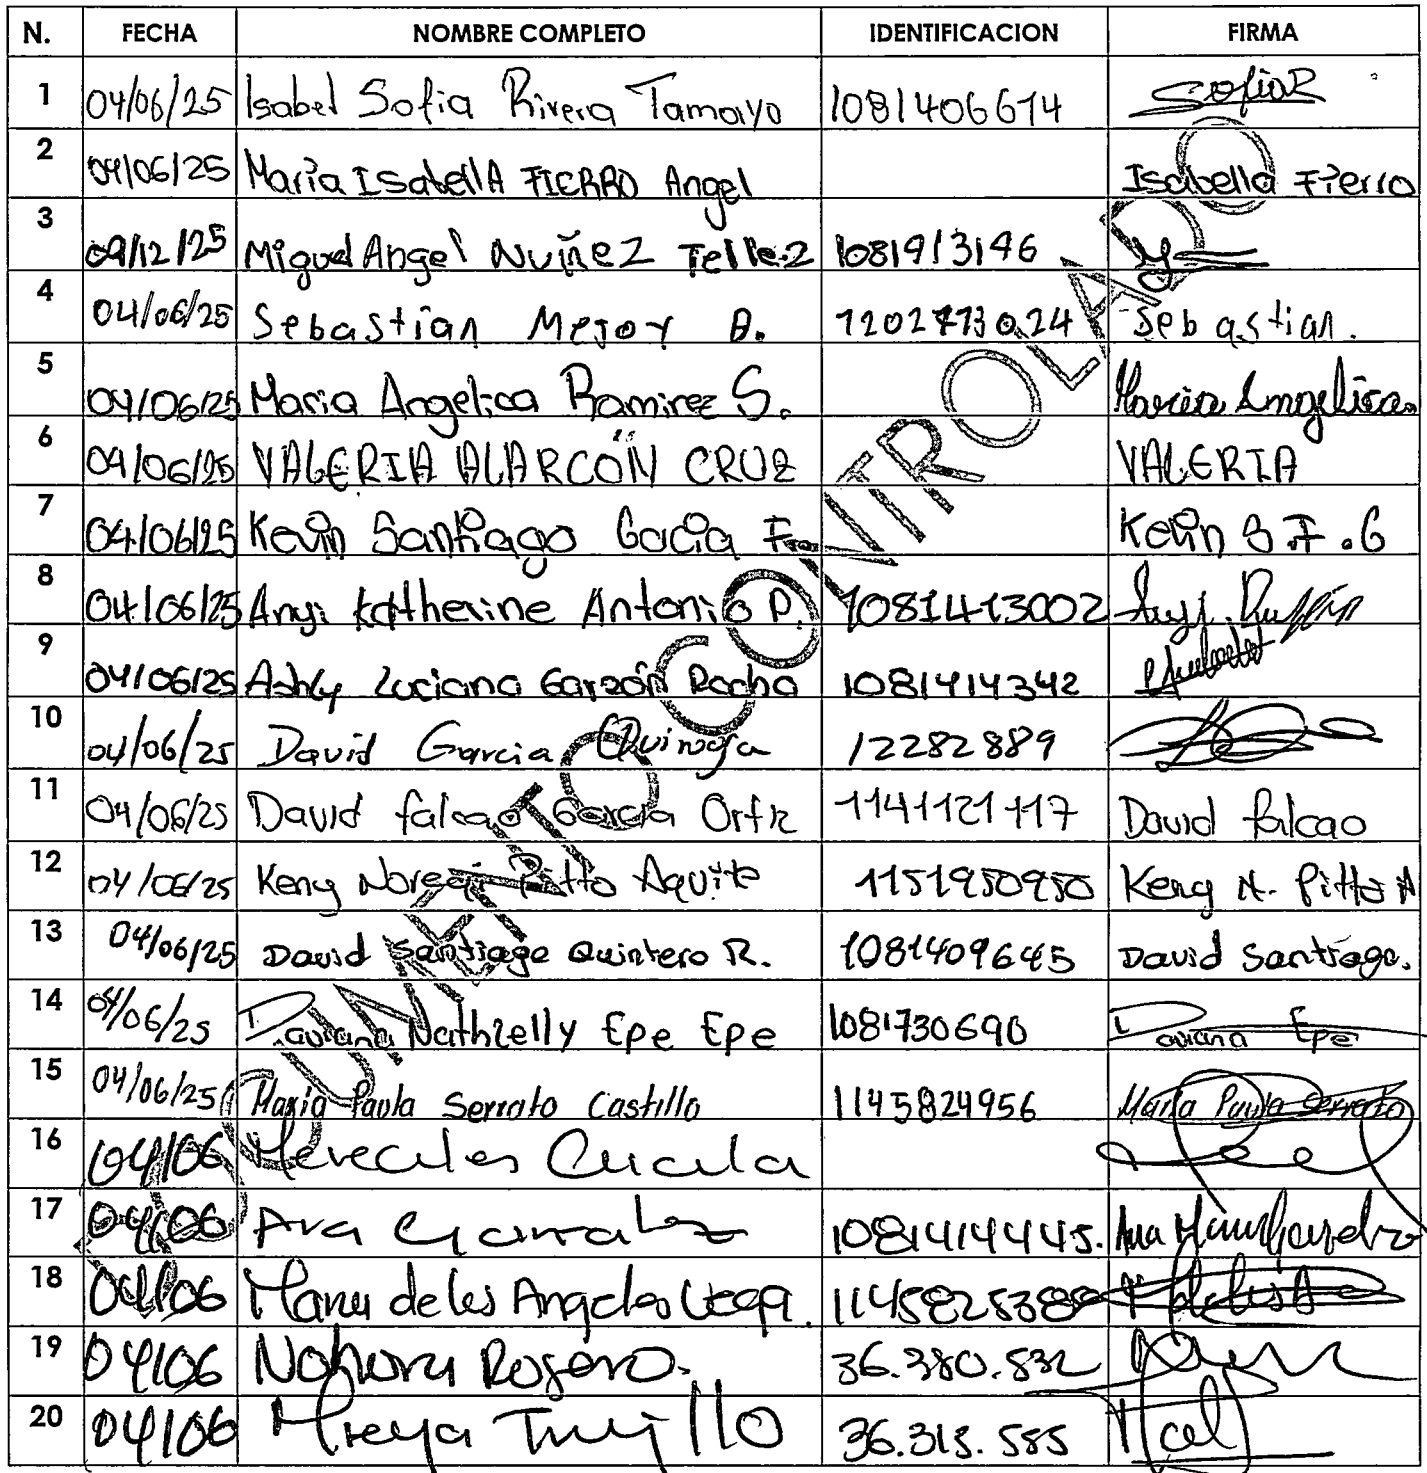 N. FECHA NOMBRE COMPLETO IDENTIFICACION FIRMA
1 04/06/25 Isabel Sofia Rivera Tamayo 1081406614 SofiaR
2 04/06/25 Maria IsabellA FIERRO Angel Isabella Fierro
3 09/12/25 Miguel Angel Nuñez Tellez 1081913146
4 04/06/25 Sebastian Mejoy B. Sebastian.
5 04/06/25 Maria Angelica Ramirez S. Maria Angelica
6 04/06/25 VALERIA ALARCÓN CRUZ VALERIA
7 04/06/25 Kevin Santiago Garcia F. Kevin S F.G
8 04/06/25 Angi Katherine Antonio P. 1081413002 Angi
9 04/06/25 Ashly Luciana Garzón Rocha 1081414342
10 04/06/25 David Garcia Quiroga 12282889
11 04/06/25 David falcao Garcia Ortiz 1141121117 David falcao
12 04/06/25 Keny Noregi Pitto Aquite 1151950950 Keny N. Pitto A
13 04/06/25 David Santiago Quintero R. 1081409645 David Santiago.
14 04/06/25 Daviana Nathzelly Epe Epe 1081730690 Daviana Epe
15 04/06/25 Maria Paula Serrato Castillo 1145824956 Maria Paula Serrato
16 04/06 Cucula
17 04/06 Ana Gonzalez 1081414445. Ana
18 04/06 Maria de los Angeles
19 04/06 Nohora Rosero. 36.380.832
20 04/06 Mireya Trujillo 36.313.585
DOCUMENTO CONTROLADO